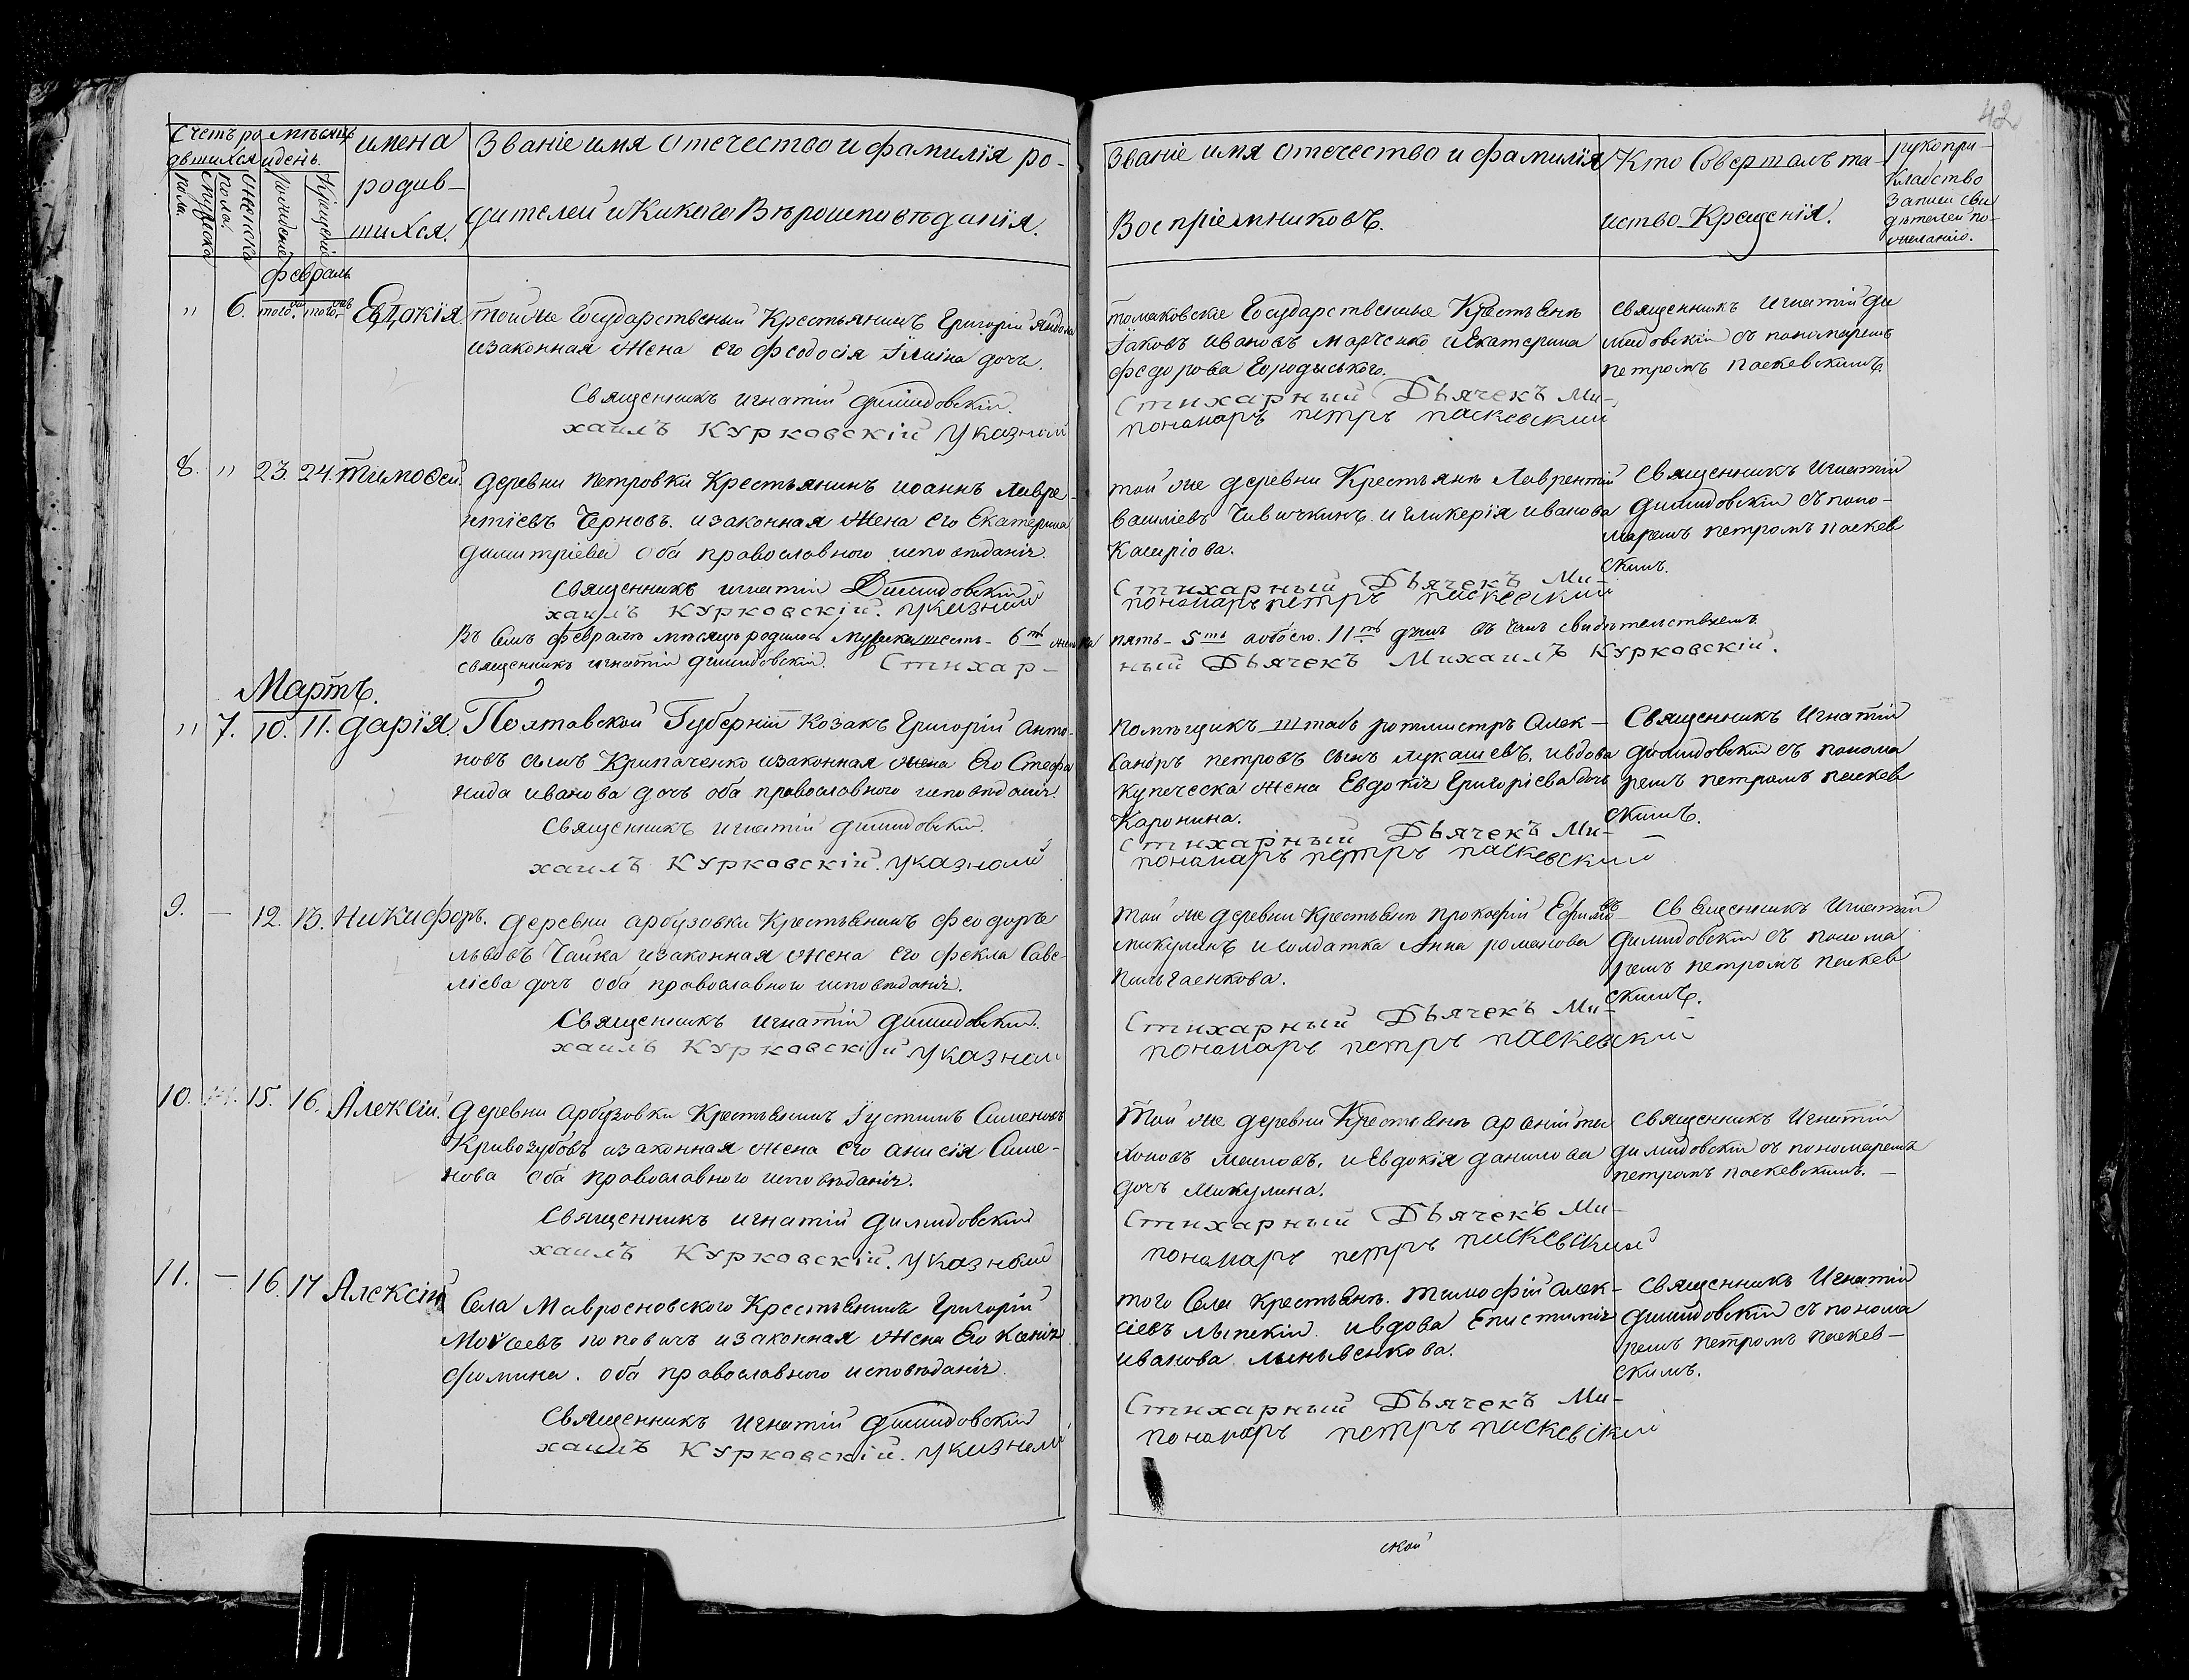 42
Счетъ ро мѣсяцъ
дившихся и день.
мужеска пола.
женска пола.
рожденiе
крещенiе
имена
родив-
шихся.
Званiе имя отечество и фамилiя ро-
дителей и Какого Вѣроисповѣданiя.
Званiе имя отечество и фамилiя
Воспрiемниковъ.
Кто Совершалъ та-
инство Крещенiя.
рукопри-
кладство
записи сви
дѣтелей по
желанiю.
февраль
" 6. того. того. Евдокiя.
той же Государственный Крестьянинъ Григорiй
и законная жена его феодосiя дочь.
Священникъ игнатiй димидовскiй.
хаилъ Курковскiй указной
томаковскiе Государственные Крестьяне
Iаковъ ивановъ Марченко и Екатерина
федорова Городыського.
Стихарный Дьячекъ Ми-
пономарь петръ паскевский
священникъ игнатiй ди
мидовскiй съ пономаремъ
петромъ паскевскимъ.
8. " 23. 24. тимофей.
деревни Петровки Крестьянинъ иоаннъ Лавре-
нтiевъ Черновъ. и законная жена его Екатерина
димитрiева оба православного исповѣданiя.
священникъ игнатiй Димидовскiй
хаилъ Курковскiй. указний
той же деревни Крестьяне Лаврентiй
васильевъ Чивичкинъ. и гликерiя иванова
Каширiова.
Стихарный Дьячекъ Ми-
пономарь петръ паскевский
Священникъ Игнатiй
димидовскiй съ поно-
маремъ петромъ паскев
скимъ.
Въ семъ февралѣ мѣсяцѣ родилось мужеска шесть - 6ть женска
пять - 5ть обоего. 11ть душъ въ чемъ свидѣтельствуемъ.
священникъ игнатiй димидовскiй. Стихар-
ный Дьячекъ Михаилъ Курковскiй.
Мартъ.
" 7. 10. 11. дарiя.
Полтавской Губернiй козакъ Григорiй анто-
новъ сынъ Крипаченко и законная жена Его Стефа
нида иванова дочь оба православного исповѣданiя.
Священникъ игнатiй димидовскiй.
хаилъ Курковскiй. указной
помѣщикъ штабъ ротмистръ Алек-
сандръ петровъ сынъ Лукашевъ. и вдова
купеческа жена Евдокiя Григорiева дочь
Каронина.
Стихарный Дьячекъ Ми-
пономарь петръ паскевский
Священникъ Игнатiй
димидовскiй съ понома
ремъ петромъ паскев
скимъ.
9. - 12. 13. Никифоръ.
деревни арбузовки Крестьянинъ феодоръ
львовъ Чайка и законная жена его фекла Саве-
лiева дочь оба православного исповѣданiя.
Священникъ игнатiй димидовскiй.
хаилъ Курковскiй указной
той же деревни Крестьяне прокофiй Ефимовъ
микулинъ и солдатка Анна романова
Пильгаенкова.
Стихарный Дьячекъ Ми-
пономарь петръ паскевский
Священникъ Игнатiй
димидовскiй съ понома
ремъ петромъ паскев
скимъ.
10. 15. 16. Алексiй.
деревни арбузовки Крестьянинъ Iустинъ Симеоновъ
Кривозубовъ и законная жена его анисiя Симе-
нова оба православного исповѣданiя.
Священникъ игнатiй димидовскiй
хаилъ Курковскiй. указный
Той же деревни Крестьяне арсенiй ти
хоновъ Маиловъ. и Евдокiя данилова
дочь Микулина.
Стихарный Дьячекъ Ми-
пономарь петръ паскевский
священникъ Игнатiй
димидовскiй съ пономаремъ
петромъ паскевскимъ. -
11. - 16. 17 Алексiй
Села Мавроеновского Крестьянинъ Григорiй
Моѵсеевъ поповичъ и законная жена Его Ксенiя
фомина. оба православного исповѣданiя
Священникъ Игнатiй димидовскiй
хаилъ Курковскiй. указной
того Села крестьяне. тимофiй алек-
сiевъ лыпскiй. и вдова Епистимiя
иванова
Стихарный Дьячекъ Ми-
пономарь петръ паскевский
священникъ Игнатiй
димидовскiй съ понома
ремъ петромъ паскев-
скимъ.
ской